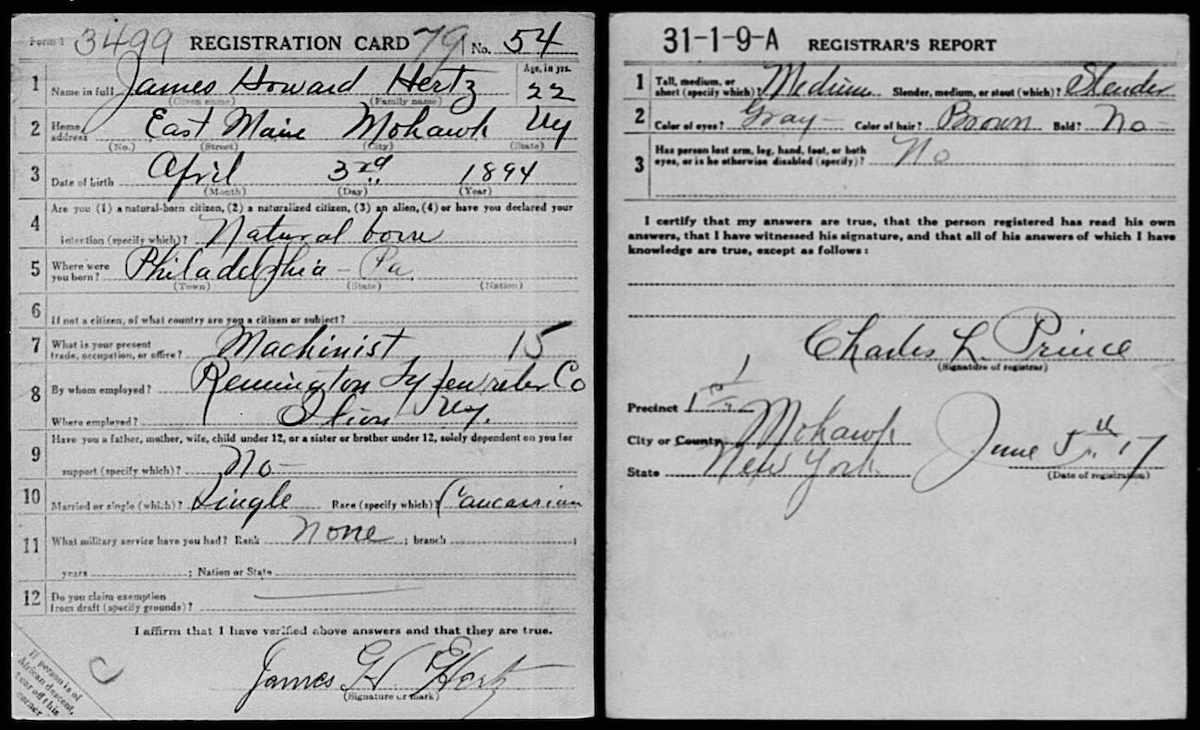 Form 1 3499 REGISTRATION CARD 79 No. 54
1 Name in full James Howard Hertz Age, in yrs. 22
(Given name) (Family name)
2 Home address East Main Mohawk NY
(No.) (Street) (City) (State)
3 Date of birth April 3rd 1894
(Month) (Day) (Year)
4 Are you (1) a natural-born citizen, (2) a naturalized citizen, (3) an alien, (4) or have you declared your
intention (specify which)? Natural born
5 Where were you born? Philadelphia - Pa
(Town) (State) (Nation)
6 If not a citizen, of what country are you a citizen or subject?
7 What is your present trade, occupation, or office? Machinist 15
8 By whom employed? Remington Typewriter Co
Where employed? Ilion NY.
9 Have you a father, mother, wife, child under 12, or a sister or brother under 12, solely dependent on you for
support (specify which)? No -
10 Married or single (which)? Single Race (specify which)? Caucassian
11 What military service have you had? Rank None ; branch ;
years ; Nation or State
12 Do you claim exemption from draft (specify grounds)?
I affirm that I have verified above answers and that they are true.
James H Hertz
(Signature or mark)
If person is of
African descent,
tear off this
corner
31-1-9-A REGISTRAR'S REPORT
1 Tall, medium, or short (specify which)? Medium Slender, medium, or stout (which)? Slender
2 Color of eyes? Gray - Color of hair? Brown Bald? No -
3 Has person lost arm, leg, hand, foot, or both
eyes, or is he otherwise disabled (specify)? No
I certify that my answers are true, that the person registered has read his own
answers, that I have witnessed his signature, and that all of his answers of which I have
knowledge are true, except as follows:
Charles L. Prince
(Signature of registrar)
Precinct 1st
City or County Mohawk
State New York
June 5th 17
(Date of registration)